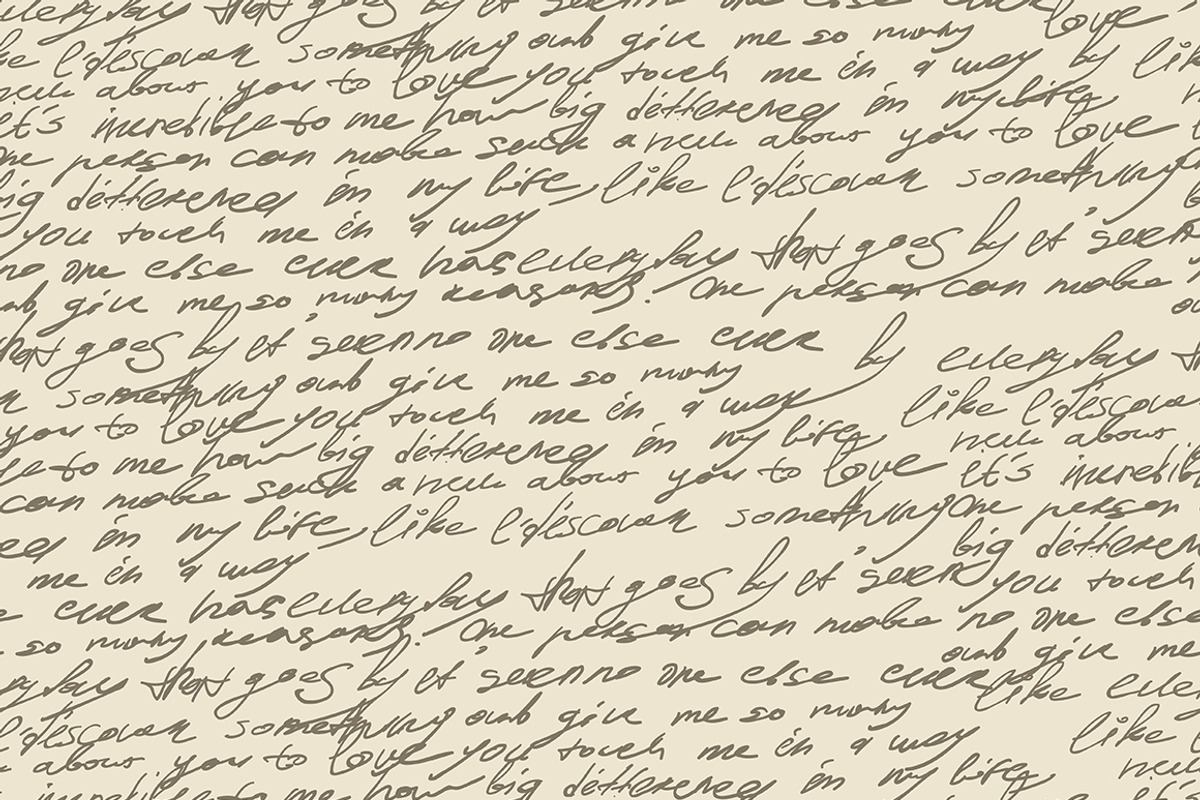 everyday that goes by it seems no one else ever love
like I discover something and give me so many
new about you to love you touch me in a way by
It's incredible to me how big difference in my life
One person can make such a new about you to love
big difference in my life, like I discover something
you touch me in a way
no one else ever has everyday that goes by it seems
and give me so many reasons. One person can make
that goes by it seems no one else ever by everyday
something and give me so many
you to love you touch me in a way like I discover
to me how big difference in my life new about
can make such a new about you to love It's
in my life, like I discover something One person
me in a way big
ever has everyday that goes by it seems you touch
so many reasons. One person can make no one else
that goes by it seems no one else ever and give me
discover something and give me so many like
about you to love you touch me in a way like
to me how big difference in my life new